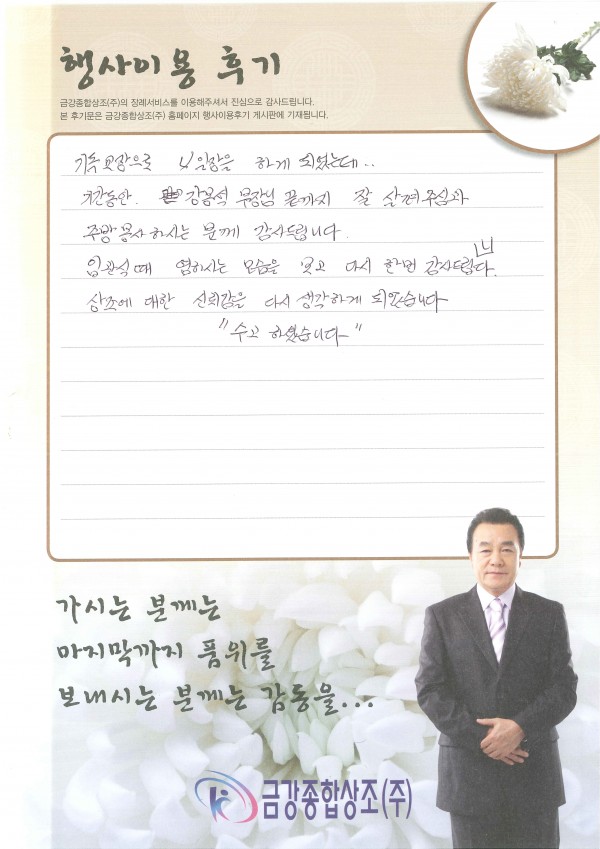 행사이용 후기
금강종합상조(주)의 장례서비스를 이용해주셔서 진심으로 감사드립니다.
본 후기문은 금강종합상조(주) 홈페이지 행사이용후기 게시판에 기재됩니다.
기독교장으로 4일장을 하게 되었는데..
기간동안. 강봉석 부장님 끝까지 잘 살펴주심과
주방봉사 하시는 분께 감사드립니다.
입관식때 염하시는 모습을 보고 다시 한번 감사드립니다.
상조에 대한 신뢰감을 다시 생각하게 되었습니다
"수고 하셨습니다"
가시는 분께는
마지막까지 품위를
보내시는 분께는 감동을...
금강종합상조(주)